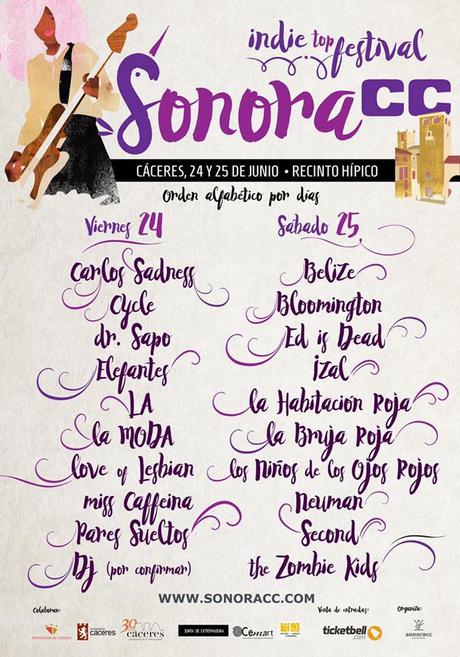 indie top festival
Sonora CC
CÁCERES, 24 Y 25 DE JUNIO • RECINTO HÍPICO
Orden alfabético por días
Viernes 24
Carlos Sadness
Cycle
dr. Sapo
Elefantes
LA
la MODA
love of Lesbian
miss Caffeina
Pares Sueltos
Dj (por confirmar)
Sábado 25
Belize
Bloomington
Ed is Dead
Izal
la Habitación Roja
la Bruja Roja
los Niños de los Ojos Rojos
Neuman
Second
the Zombie Kids
WWW.SONORACC.COM
Colaboran:
cáceres
30 cáceres
JUNTA DE EXTREMADURA
Cemart
Venta de entradas:
ticketbell.com
Organiza:
sonoracc